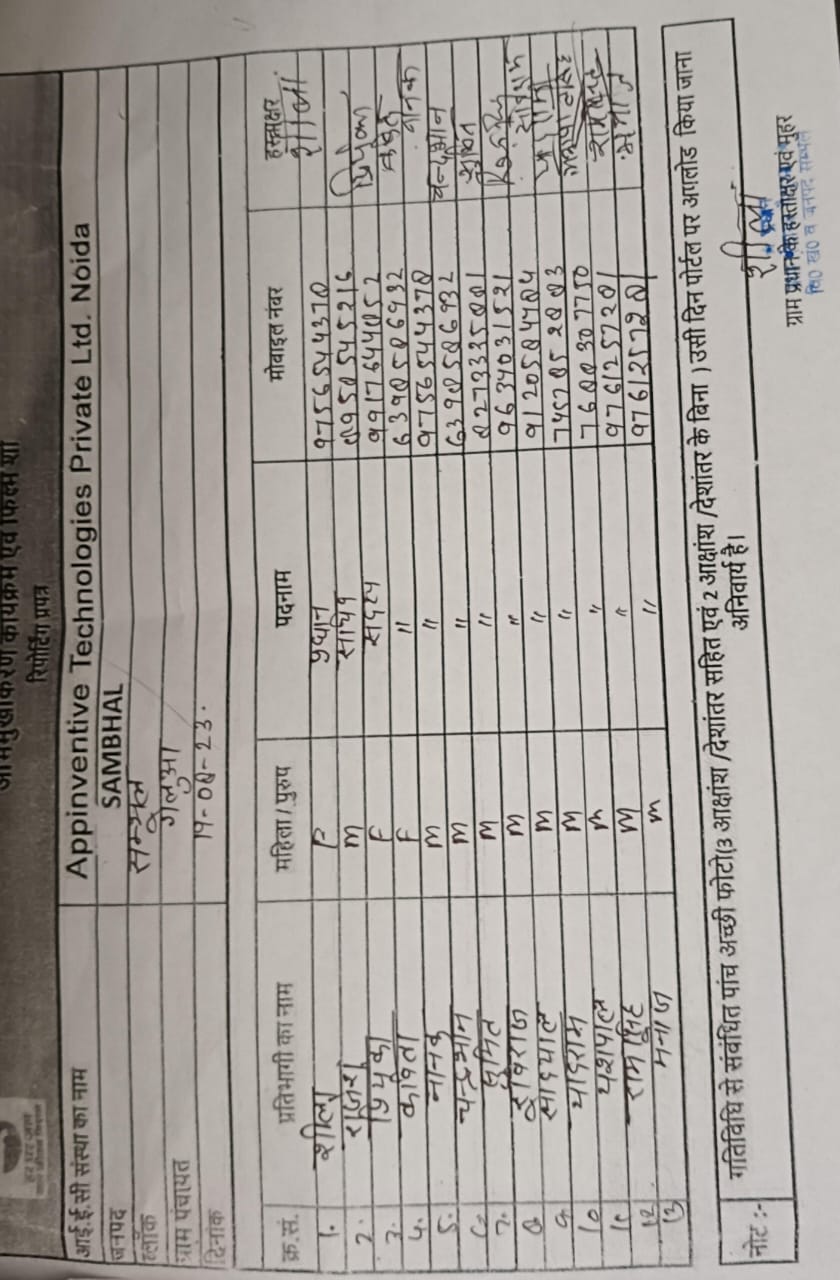 अभिमुखीकरण कार्यक्रम एवं फिल्म शो
रिपोर्टिंग प्रपत्र
आई.ई.सी संस्था का नाम Appinventive Technologies Private Ltd. Noida
जनपद SAMBHAL
ब्लॉक सम्भल
ग्राम पंचायत गलुआ
दिनांक 19-08-23.
क्र.सं. प्रतिभागी का नाम महिला / पुरुष पदनाम मोबाइल नंबर हस्ताक्षर
1. शीला F प्रधान 9756544370 शीला
2. राजेश M सचिव 8958545216
3. प्रियंका F सदस्य 9917644052 प्रियंका
4. कविता F " 6398586932
5. नानक M " 9756544370 नानक
6. चन्द्रभान M " 6398586932 चन्द्रभान
7. सुमित M " 8273335881 सुमित
8 M " 9634031521
9. M " 9120584784
10 यादराम M " 7457852883
11 यशपाल M " 7600307750
12 राम सिंह M " 9761257281
13 मनोज M " 9761257281 मनोज
नोट :- गतिविधि से संबंधित पांच अच्छी फोटो(3 आक्षांश /देशांतर सहित एवं 2 आक्षांश /देशांतर के बिना ) उसी दिन पोर्टल पर अपलोड किया जाना
अनिवार्य है।
शीला
प्रधान
ग्राम प्रधान के हस्ताक्षर एवं मुहर
वि0 खं0 व जनपद सम्भल